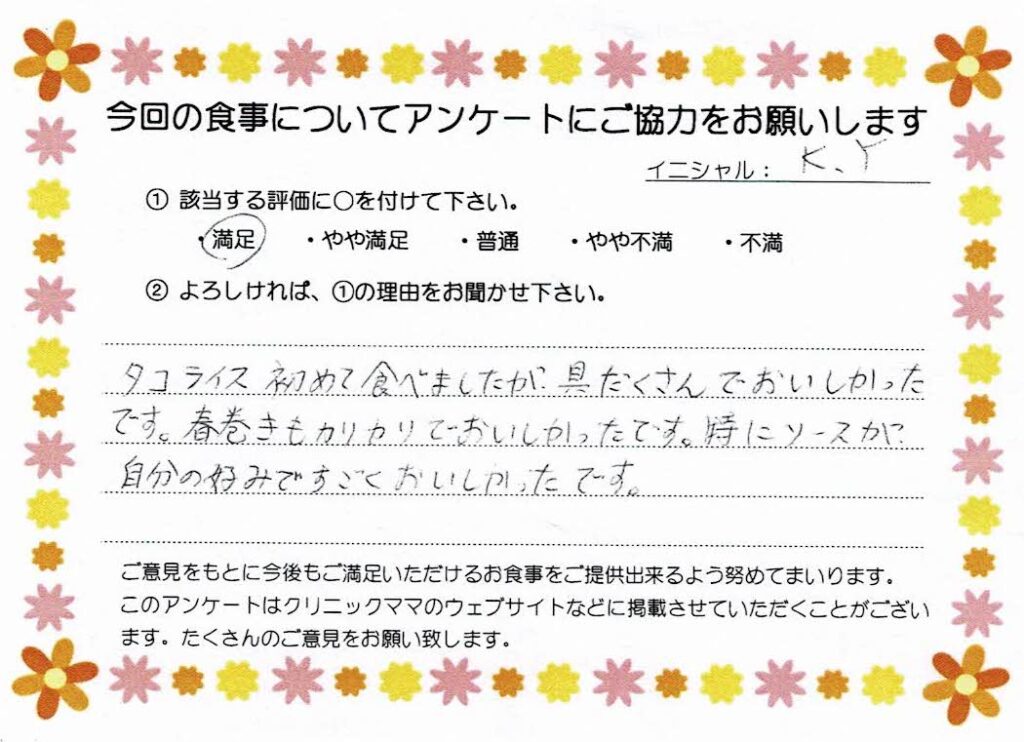 今回の食事についてアンケートにご協力をお願いします
イニシャル： K、Y
① 該当する評価に○を付けて下さい。
・満足 ・やや満足 ・普通 ・やや不満 ・不満
② よろしければ、①の理由をお聞かせ下さい。
タコライス初めて食べましたが、具たくさんでおいしかった
です。春巻きもカリカリでおいしかったです。特にソースが
自分の好みですごくおいしかったです。
ご意見をもとに今後もご満足いただけるお食事をご提供出来るよう努めてまいります。
このアンケートはクリニックママのウェブサイトなどに掲載させていただくことがござい
ます。たくさんのご意見をお願い致します。